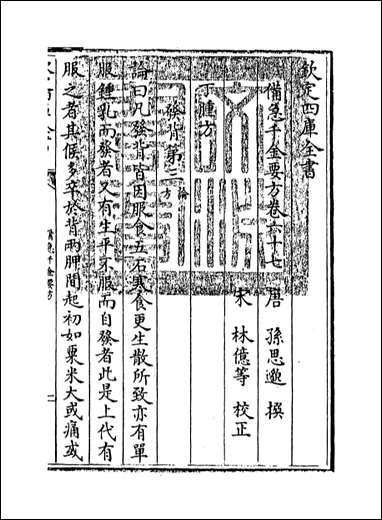 欽定四庫全書
備急千金要方卷六十七
唐 孫思邈 撰
宋 林億等 校正
丁腫方
發背第三 論 方
論曰凡發背皆因服食五石寒食更生散所致亦有單
服鍾乳而發者又有生平不服而自發者此是上代有
服之者其候多發於背兩胛間起初如粟米大或痛或
備急千金要方